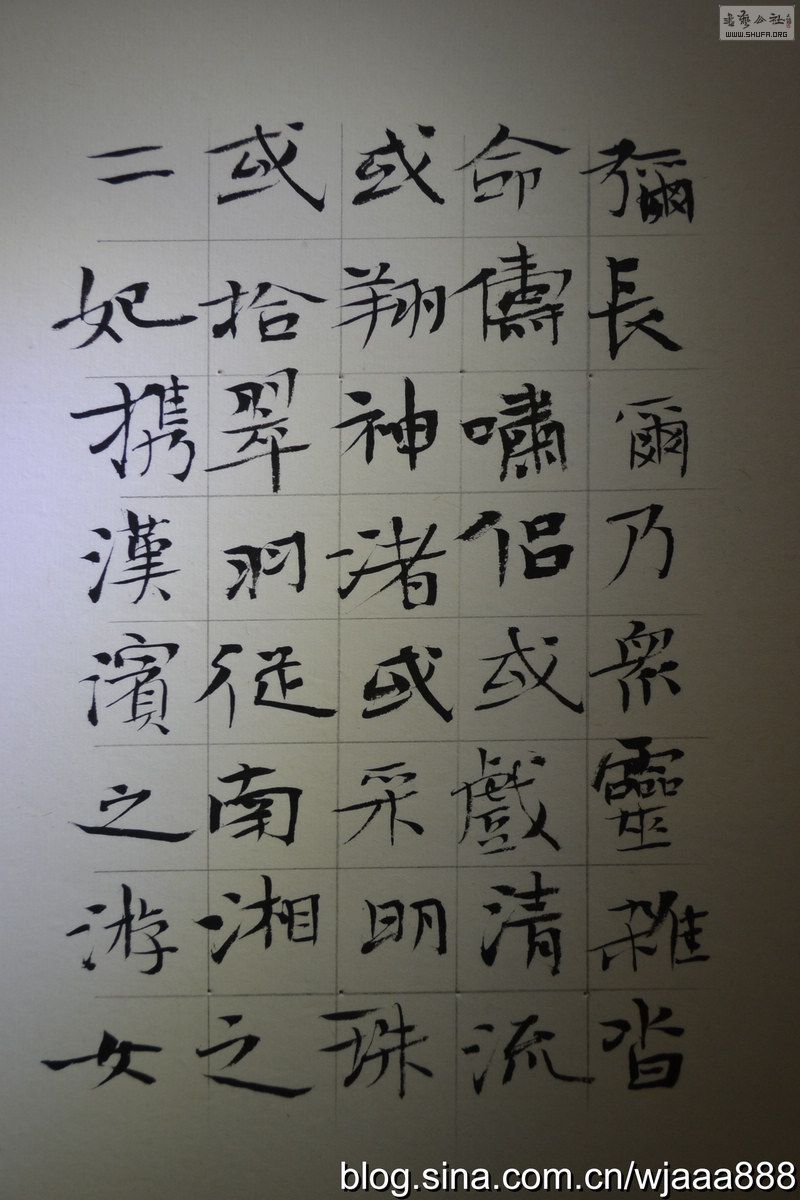 彌長爾乃衆靈雜沓
命儔嘯侶或戲清流
或翔神渚或采明珠
或拾翠羽從南湘之
二妃攜漢濱之游女
書藝公社
WWW.SHUFA.ORG
blog.sina.com.cn/wjaaa888